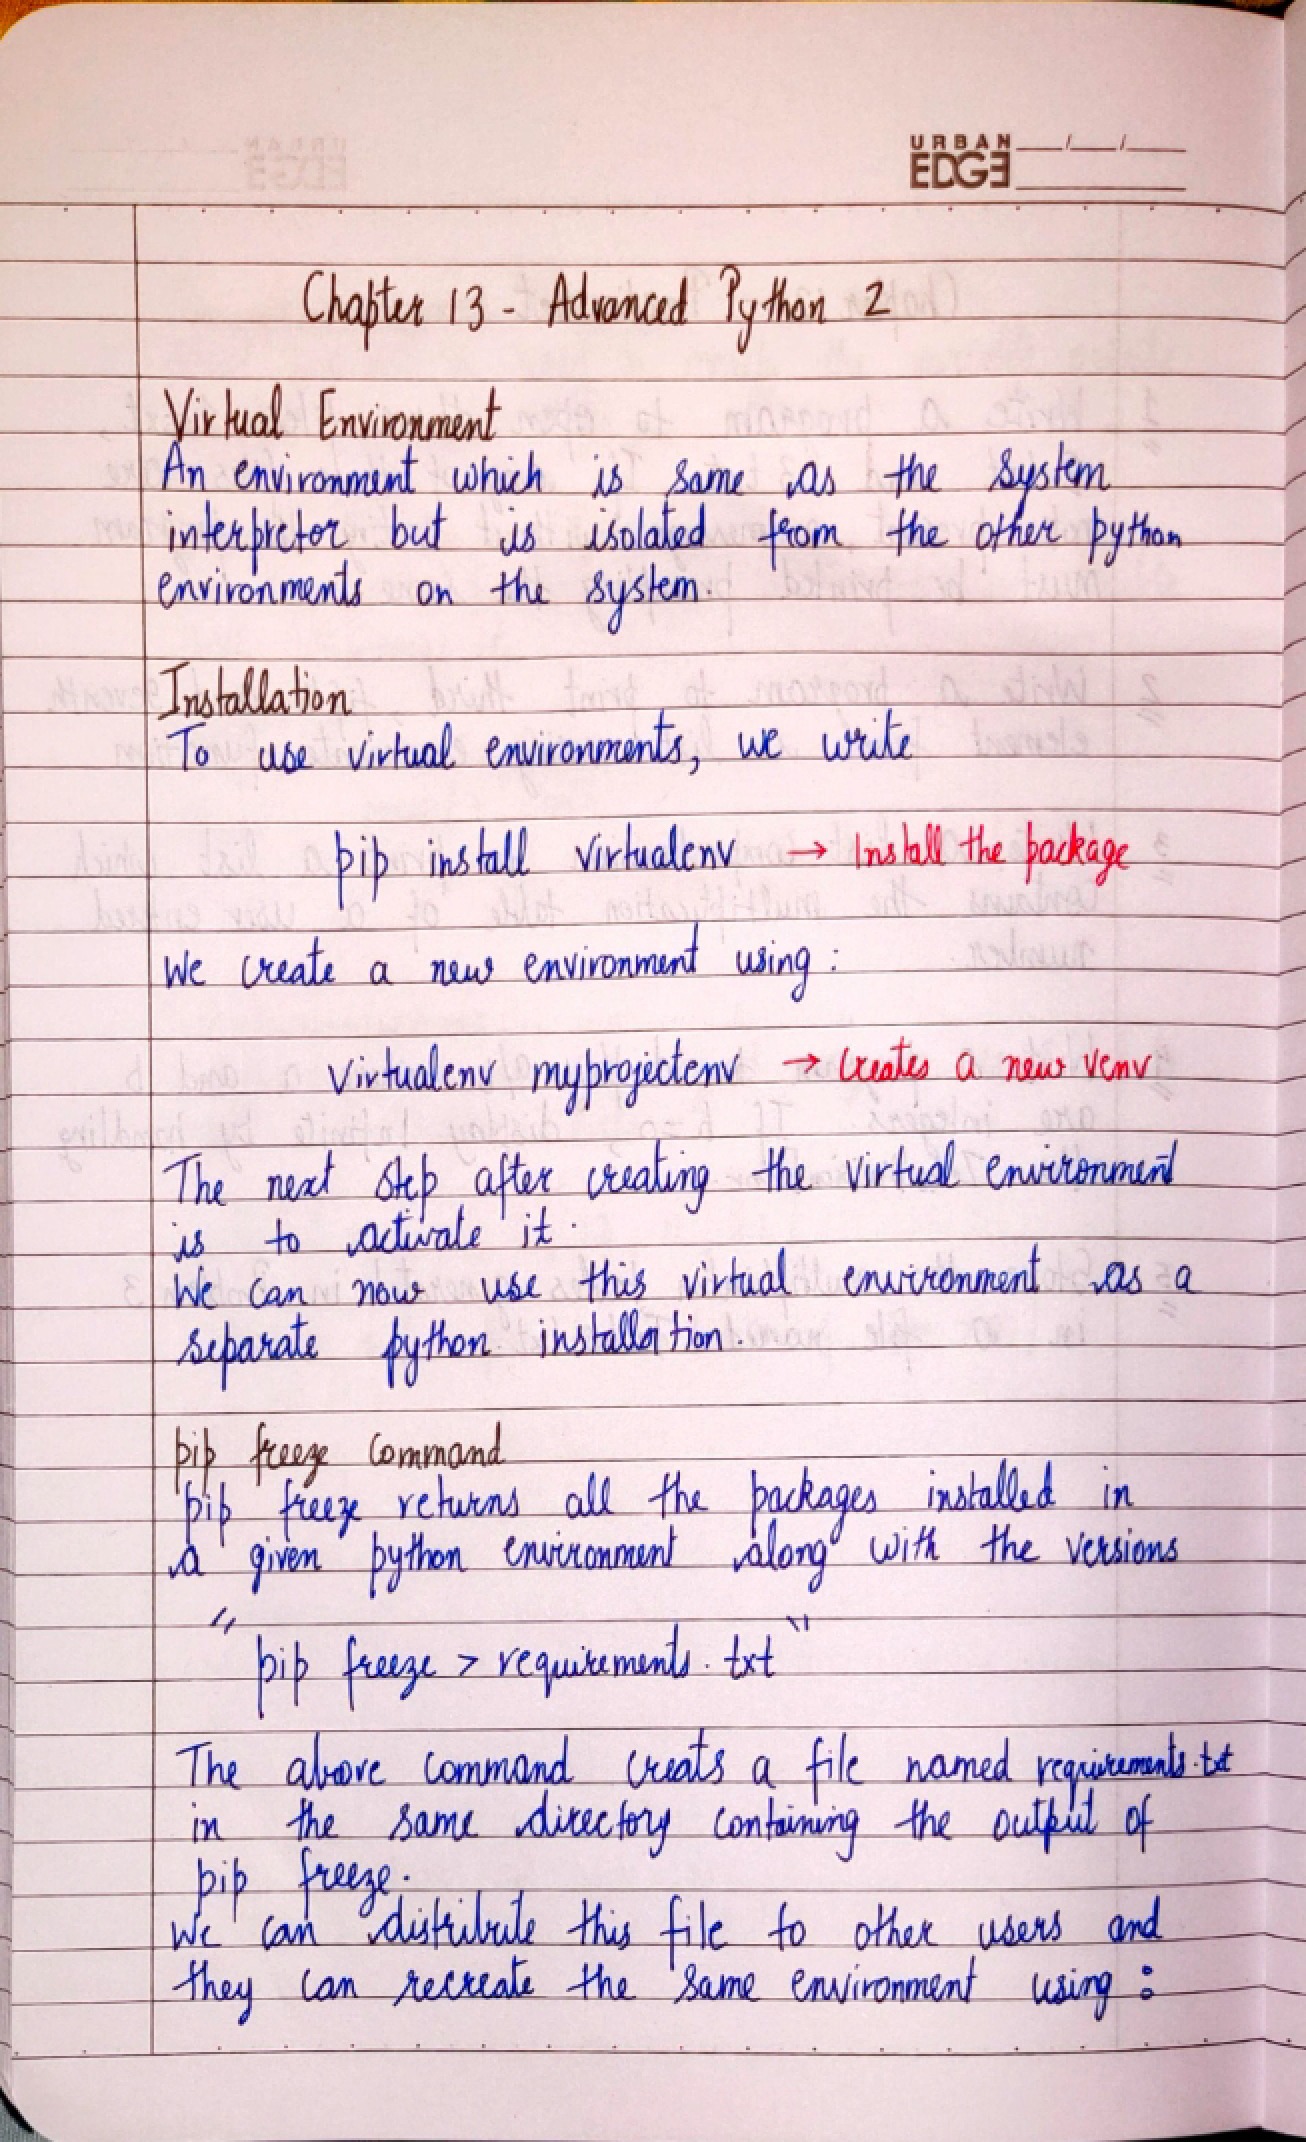 URBAN
EDGE
Chapter 13 - Advanced Python 2
Virtual Environment
An environment which is same as the system
interpretor but is isolated from the other python
environments on the system.
Installation
To use virtual environments, we write
pip install virtualenv → Install the package
We create a new environment using :
virtualenv myprojectenv → Creates a new venv
The next step after creating the virtual environment
is to activate it.
We can now use this virtual environment as a
separate python installation.
pip freeze command
pip freeze returns all the packages installed in
a given python environment along with the versions
"pip freeze > requirements.txt"
The above command creats a file named requirements.txt
in the same directory containing the output of
pip freeze.
We can distribute this file to other users and
they can recreate the same environment using :